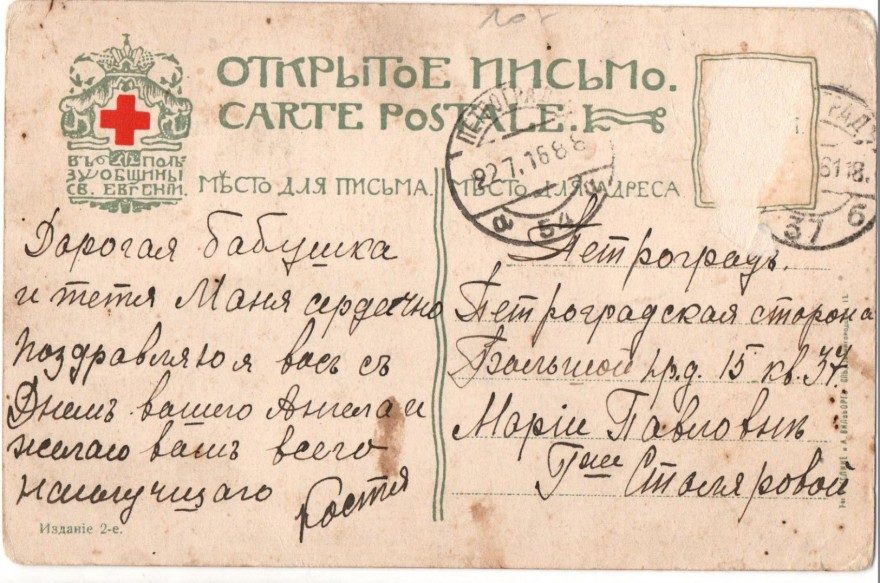 ОТКРЫТОЕ ПИСЬМО.
CARTE POSTALE.
ВЪ ПОЛЬ
ЗУ ОБЩИНЫ
СВ. ЕВГЕНІИ.
МѢСТО ДЛЯ ПИСЬМА.
МѢСТО ДЛЯ АДРЕСА
22.7.16
а 54
37 б
Дорогая бабушка
и тетя Маня сердечно
поздравляю я васъ съ
Днемъ вашего Ангела и
желаю вамъ всего
наилучщаго
Костя
Издание 2-е.
Петроградъ.
Петроградская сторона
Большой пр.д. 15 кв. 37
Маріи Павловнѣ
Гжѣ Столяровой